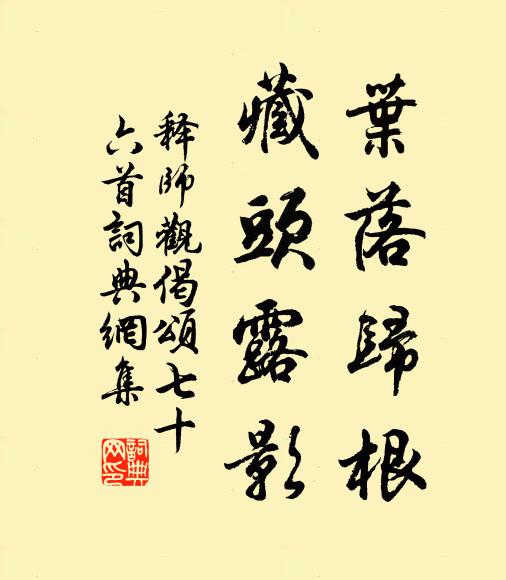 葉落歸根
藏頭露影
释師觀偈頌七十
六首詞典網集
詞典
网印